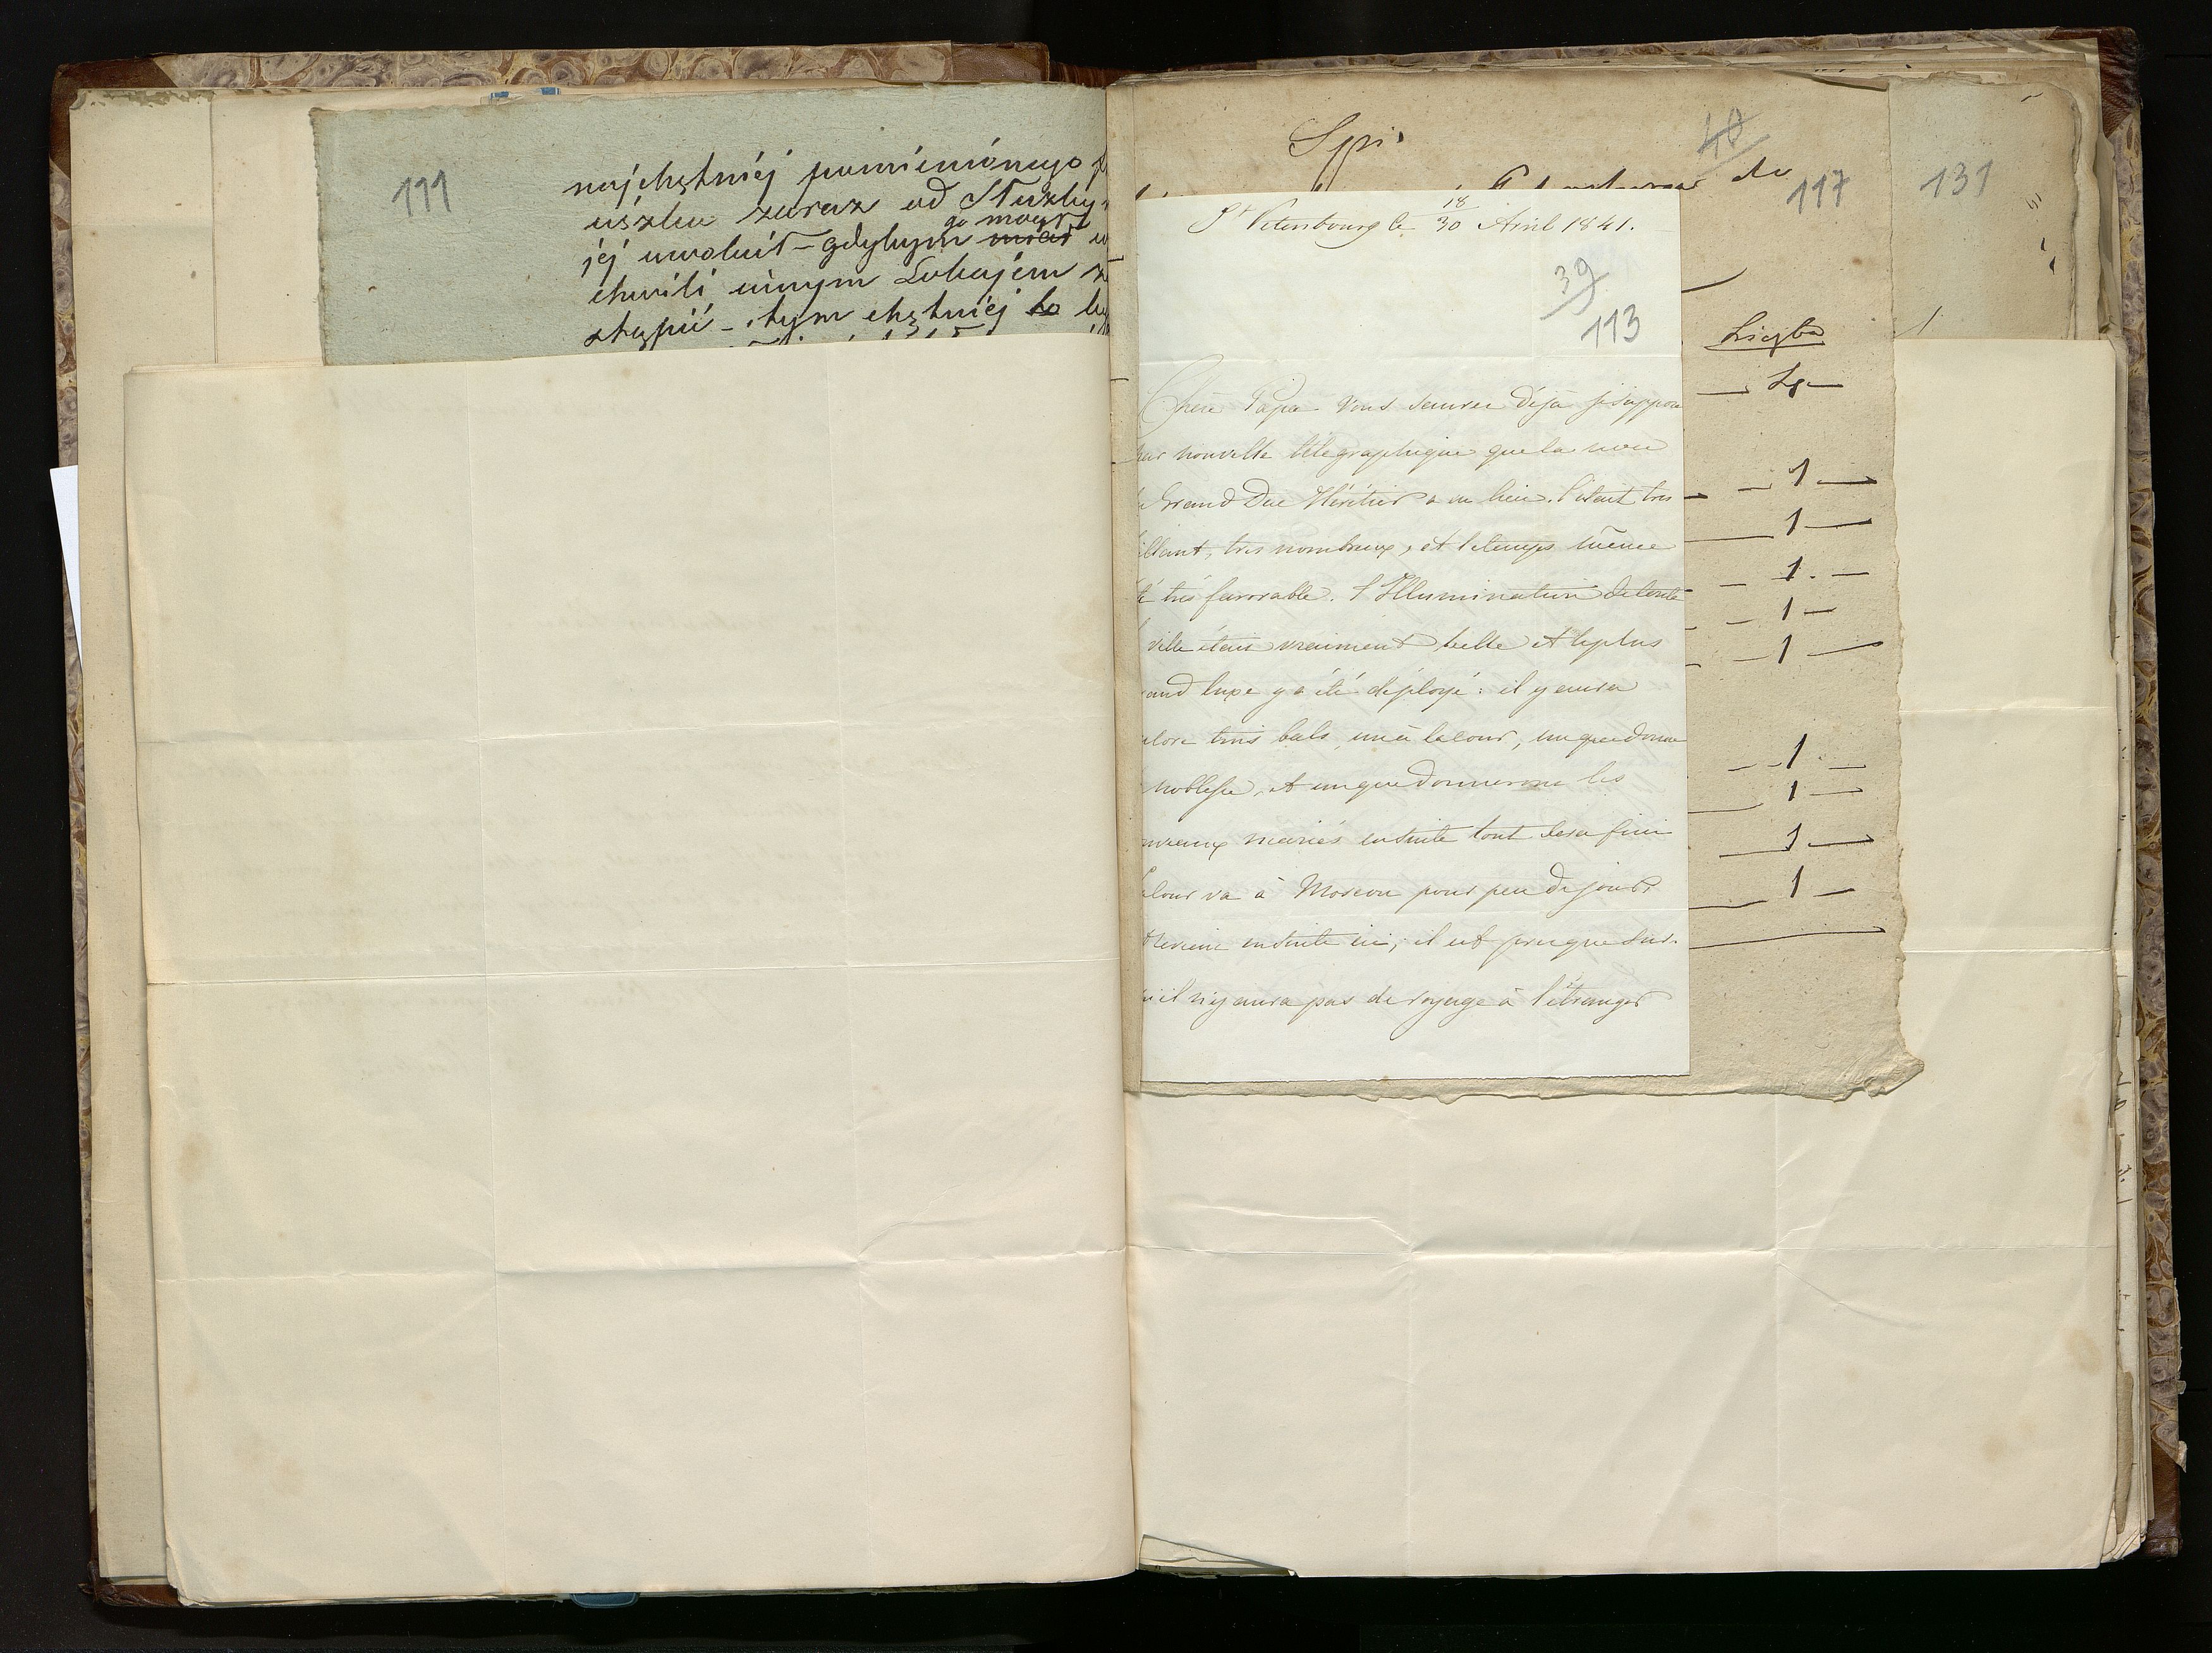 111
najchętniéj pomienionego
úszku zaraz od Służby
go mógł
jéj uwolnił – gdybym miał
chwili innym Lokajem
stąpić – tym chętniéj to
Spis
40
do
117
131
Liczba
1
1
1
1
1
1
1
1
1
St Petersbourg le 18/30 Avril 1841.
39
113
Chère Papa Vous saurez déja je suppose
par nouvelle télegraphique que la noce
Grand Duc Héritier a eu lieu. C'était tres
illant, tres nombreux, et le temps même
té très favorable. l'Illumination de toute
ville était vraiment belle et le plus
rand luxe y a été déployé : il y aura
trois bals un à la cour, un que donne
noblesse, et un que donneront les
ouveaux mariés ensuite tout sera fini
la Cour va à Moscou pour peu de jours,
revient ensuite ici ; il est presque sur
qu'il n'y aura pas de voyage à l'étranger